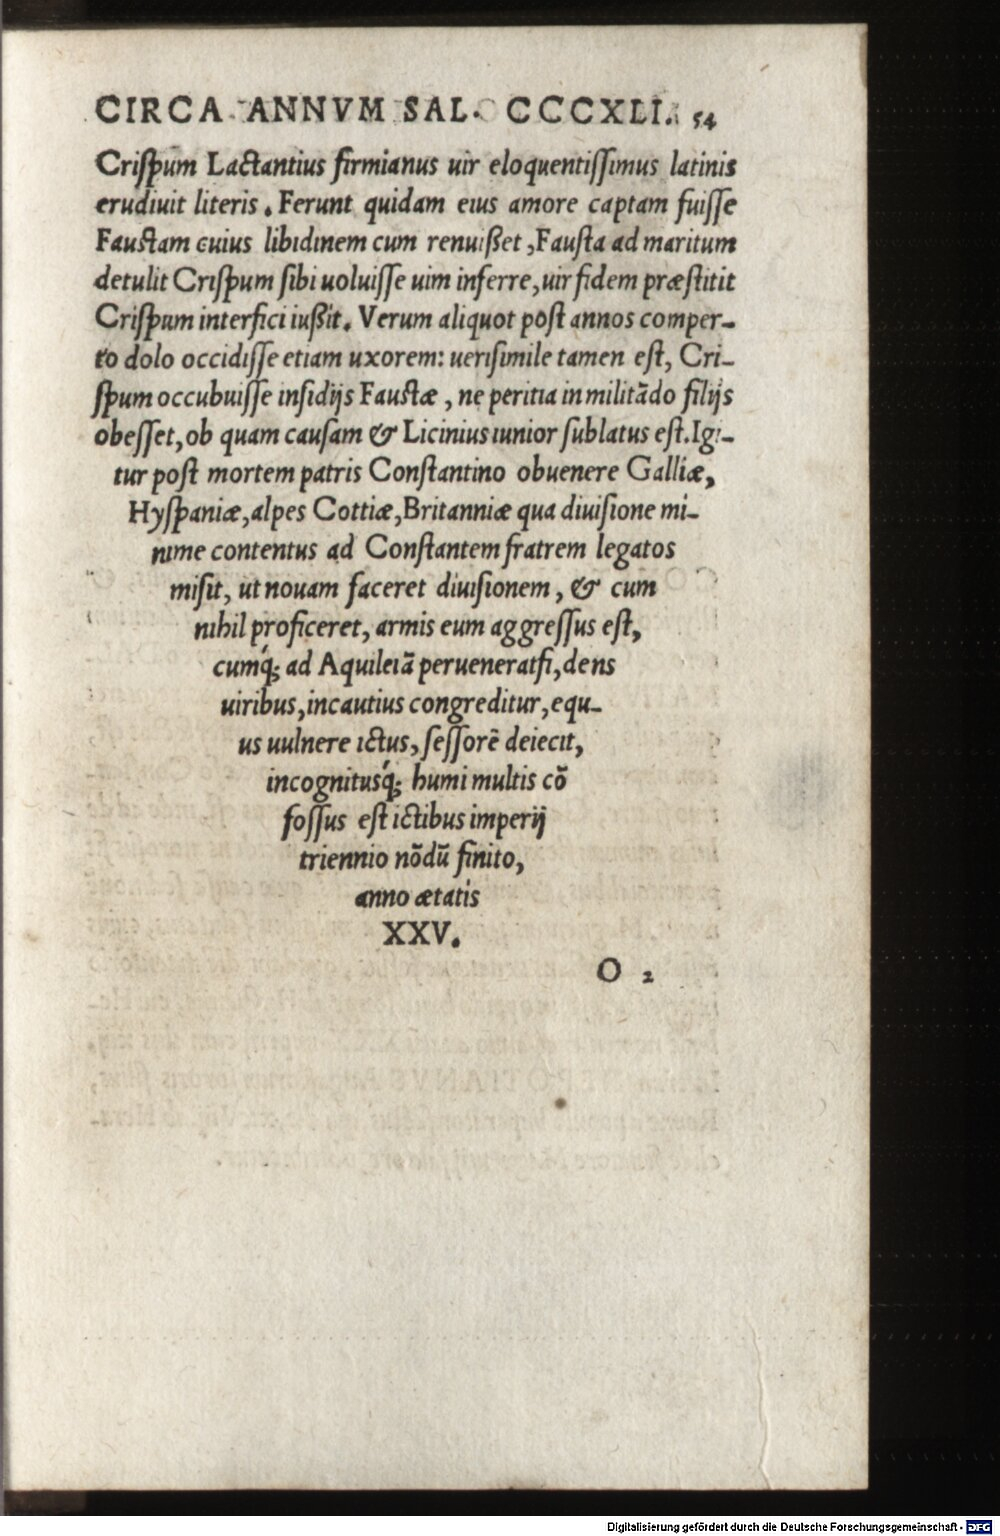 CIRCA ANNVM SAL. CCCXLI. 54
Criſpum Lactantius firmianus uir eloquentiſſimus latinis
erudiuit literis. Ferunt quidam eius amore captam fuiſſe
Fauſtam cuius libidinem cum renuiſſet, Fauſta ad maritum
detulit Criſpum ſibi uoluiſſe uim inferre, uir fidem præſtitit
Criſpum interfici iußit. Verum aliquot poſt annos comper-
to dolo occidiſſe etiam uxorem: ueriſimile tamen eſt, Cri-
ſpum occubuiſſe inſidijs Fauſtæ, ne peritia in militādo filijs
obeſſet, ob quam cauſam & Licinius iunior ſublatus eſt. Igi-
tur poſt mortem patris Conſtantino obuenere Galliæ,
Hyſpaniæ, alpes Cottiæ, Britanniæ qua diuiſione mi-
nime contentus ad Conſtantem fratrem legatos
miſit, ut nouam faceret diuiſionem, & cum
nihil proficeret, armis eum aggreſſus eſt,
cumq́; ad Aquileiā perueneratfi, dens
uiribus, incautius congreditur, equ-
us uulnere ictus, ſeſſorē deiecit,
incognitusq́; humi multis cō
foſſus eſt ictibus imperij
triennio nōdū finito,
anno ætatis
XXV.
O 2
Digitalisierung gefördert durch die Deutsche Forschungsgemeinschaft - DFG